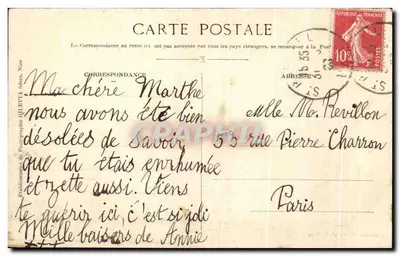 CARTE POSTALE
La Correspondance au recto n'est pas acceptée par tous les pays étrangers, se renseigner à la Poste
CORRESPONDANCE
ADRESSE
RÉPUBLIQUE FRANÇAISE
10
Ma chère Marthe
nous avons été bien
désolées de savoir
que tu étais enrhumée
et zette aussi. Viens
te guérir ici, c'est si joli
Mille baisers de Annie
Mlle M. Revillon
55 rue Pierre Charron
Paris
GILETTA frères, Nice